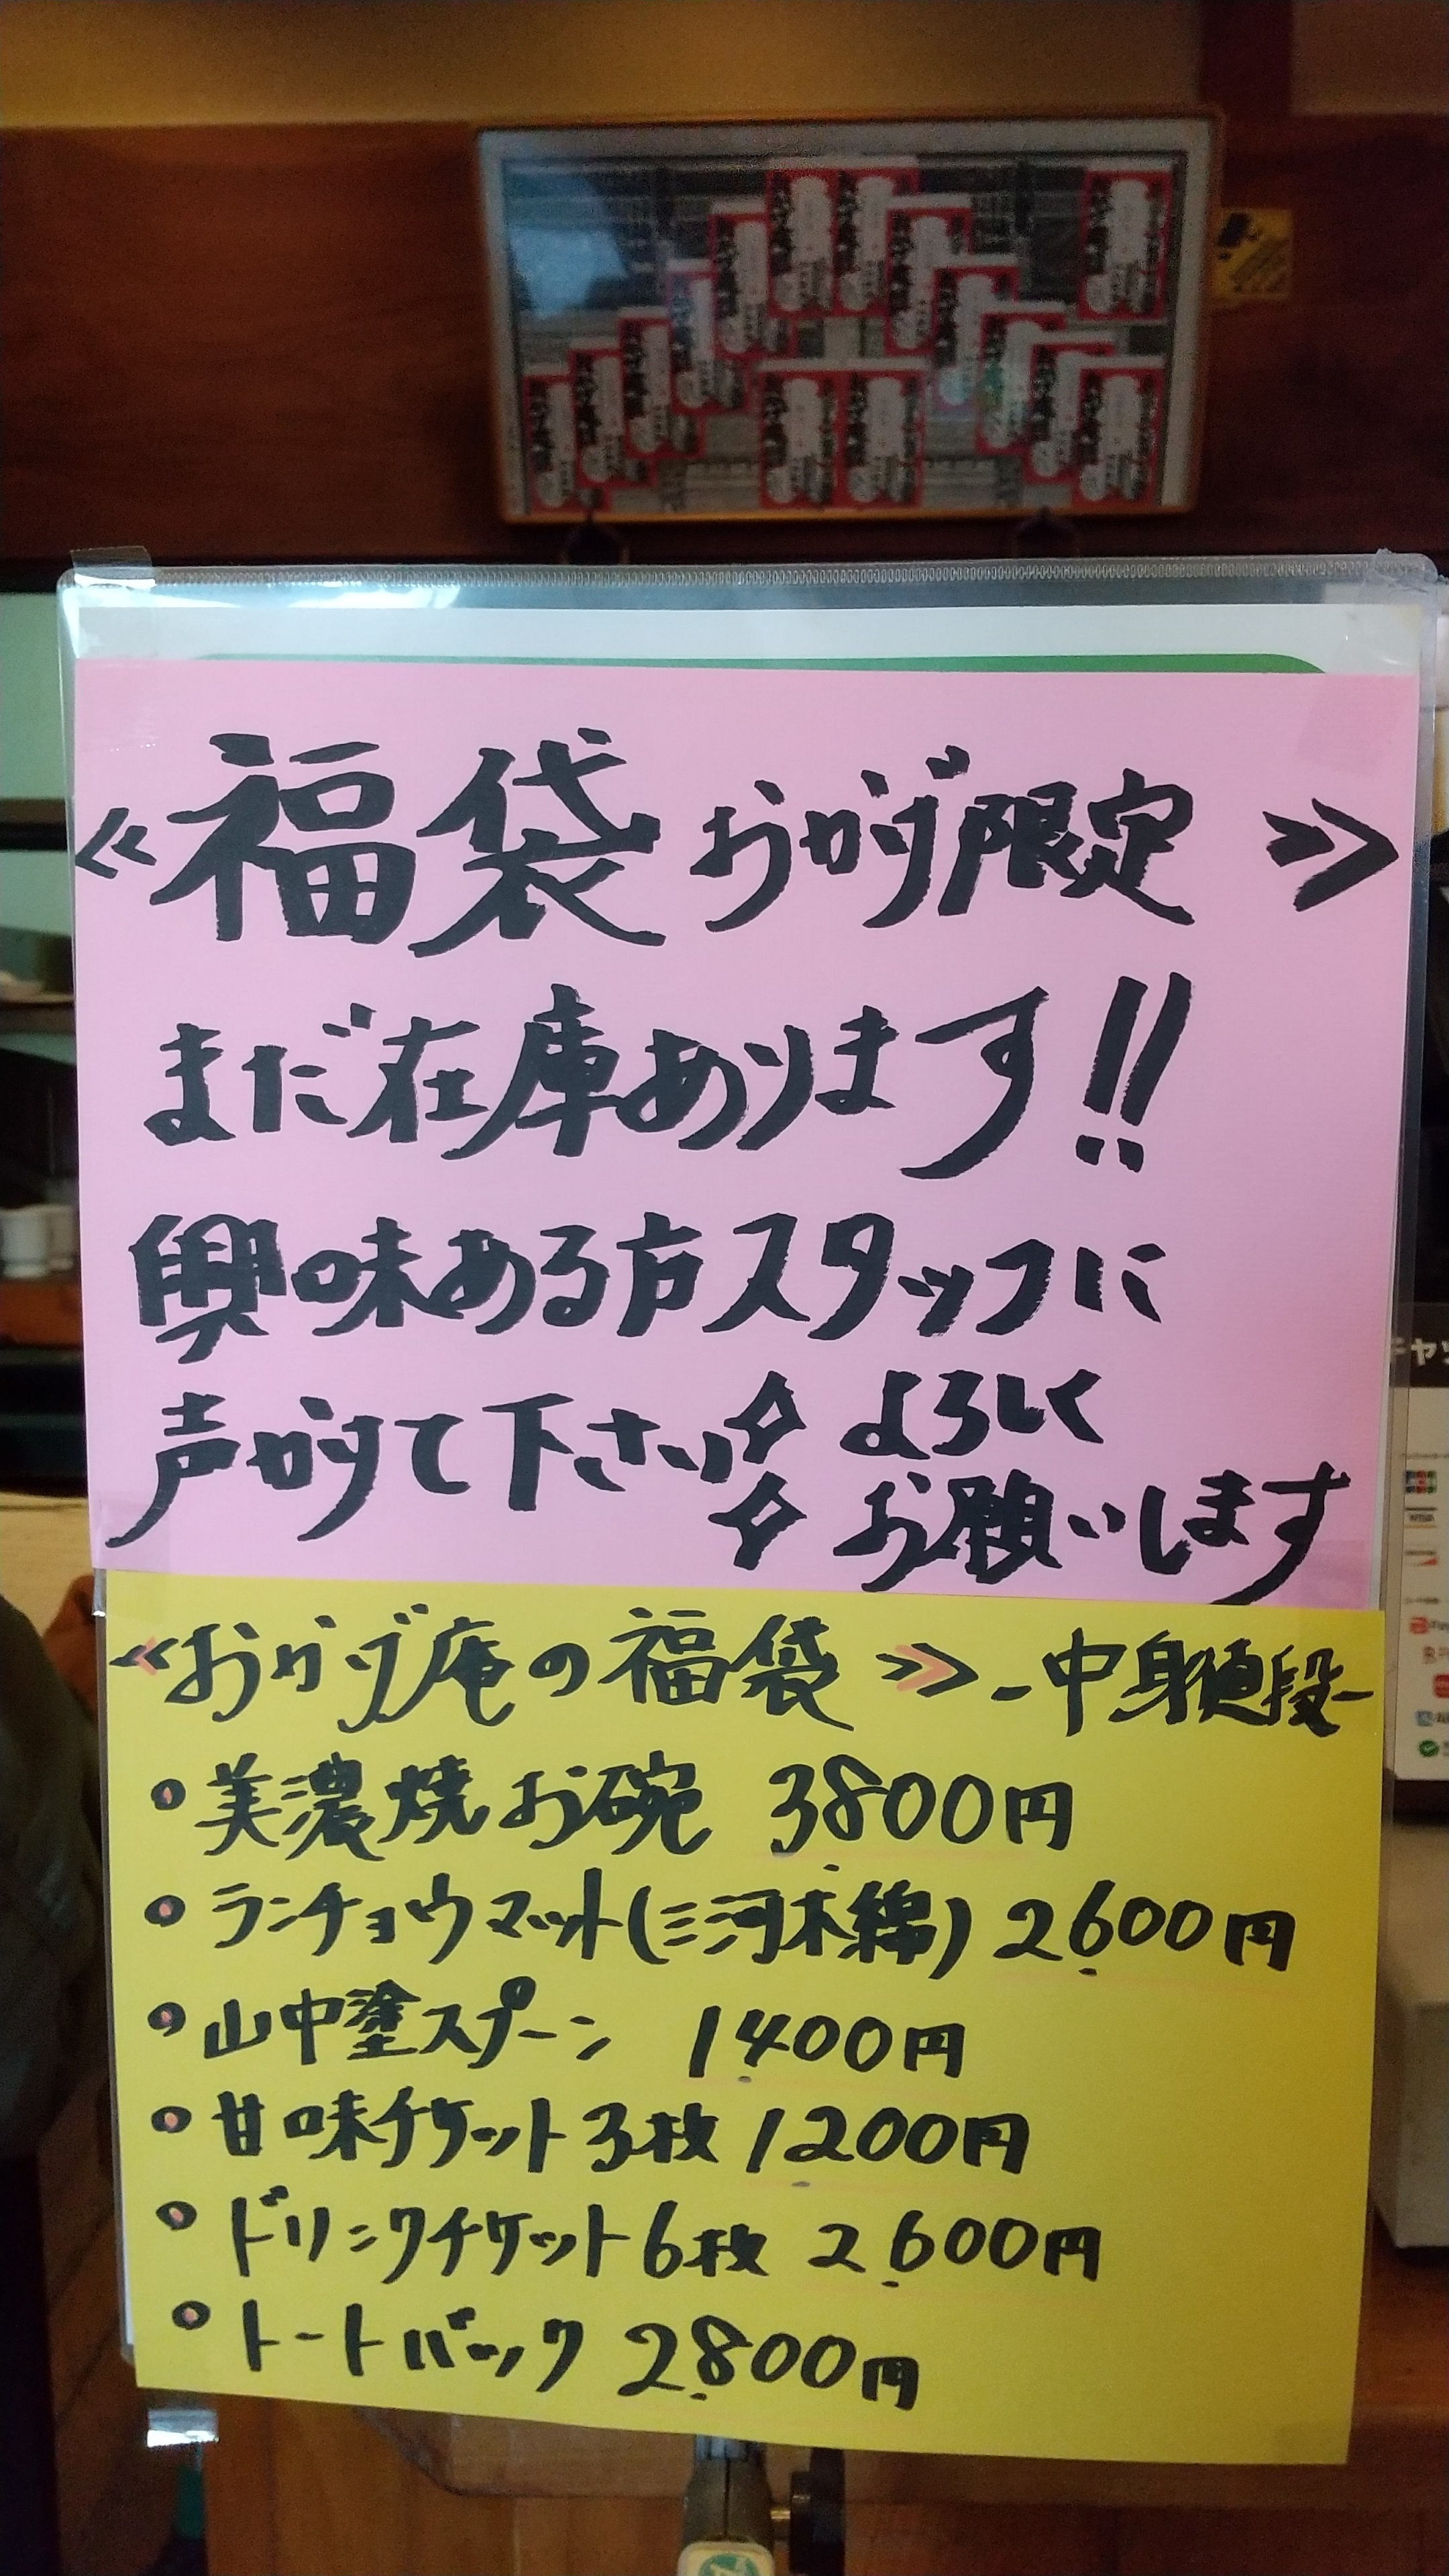 ≪福袋 おかげ限定≫
まだ在庫あります!!
興味ある方スタッフに
声かけて下さい✧ よろしく
✧ お願いします
≪おかげ庵の福袋≫ -中身値段-
• 美濃焼お碗 3800円
• ランチョンマット(三河木綿) 2,600円
• 山中塗スプーン 1,400円
• 甘味チケット3枚 1,200円
• ドリンクチケット6枚 2,600円
• トートバック 2,800円